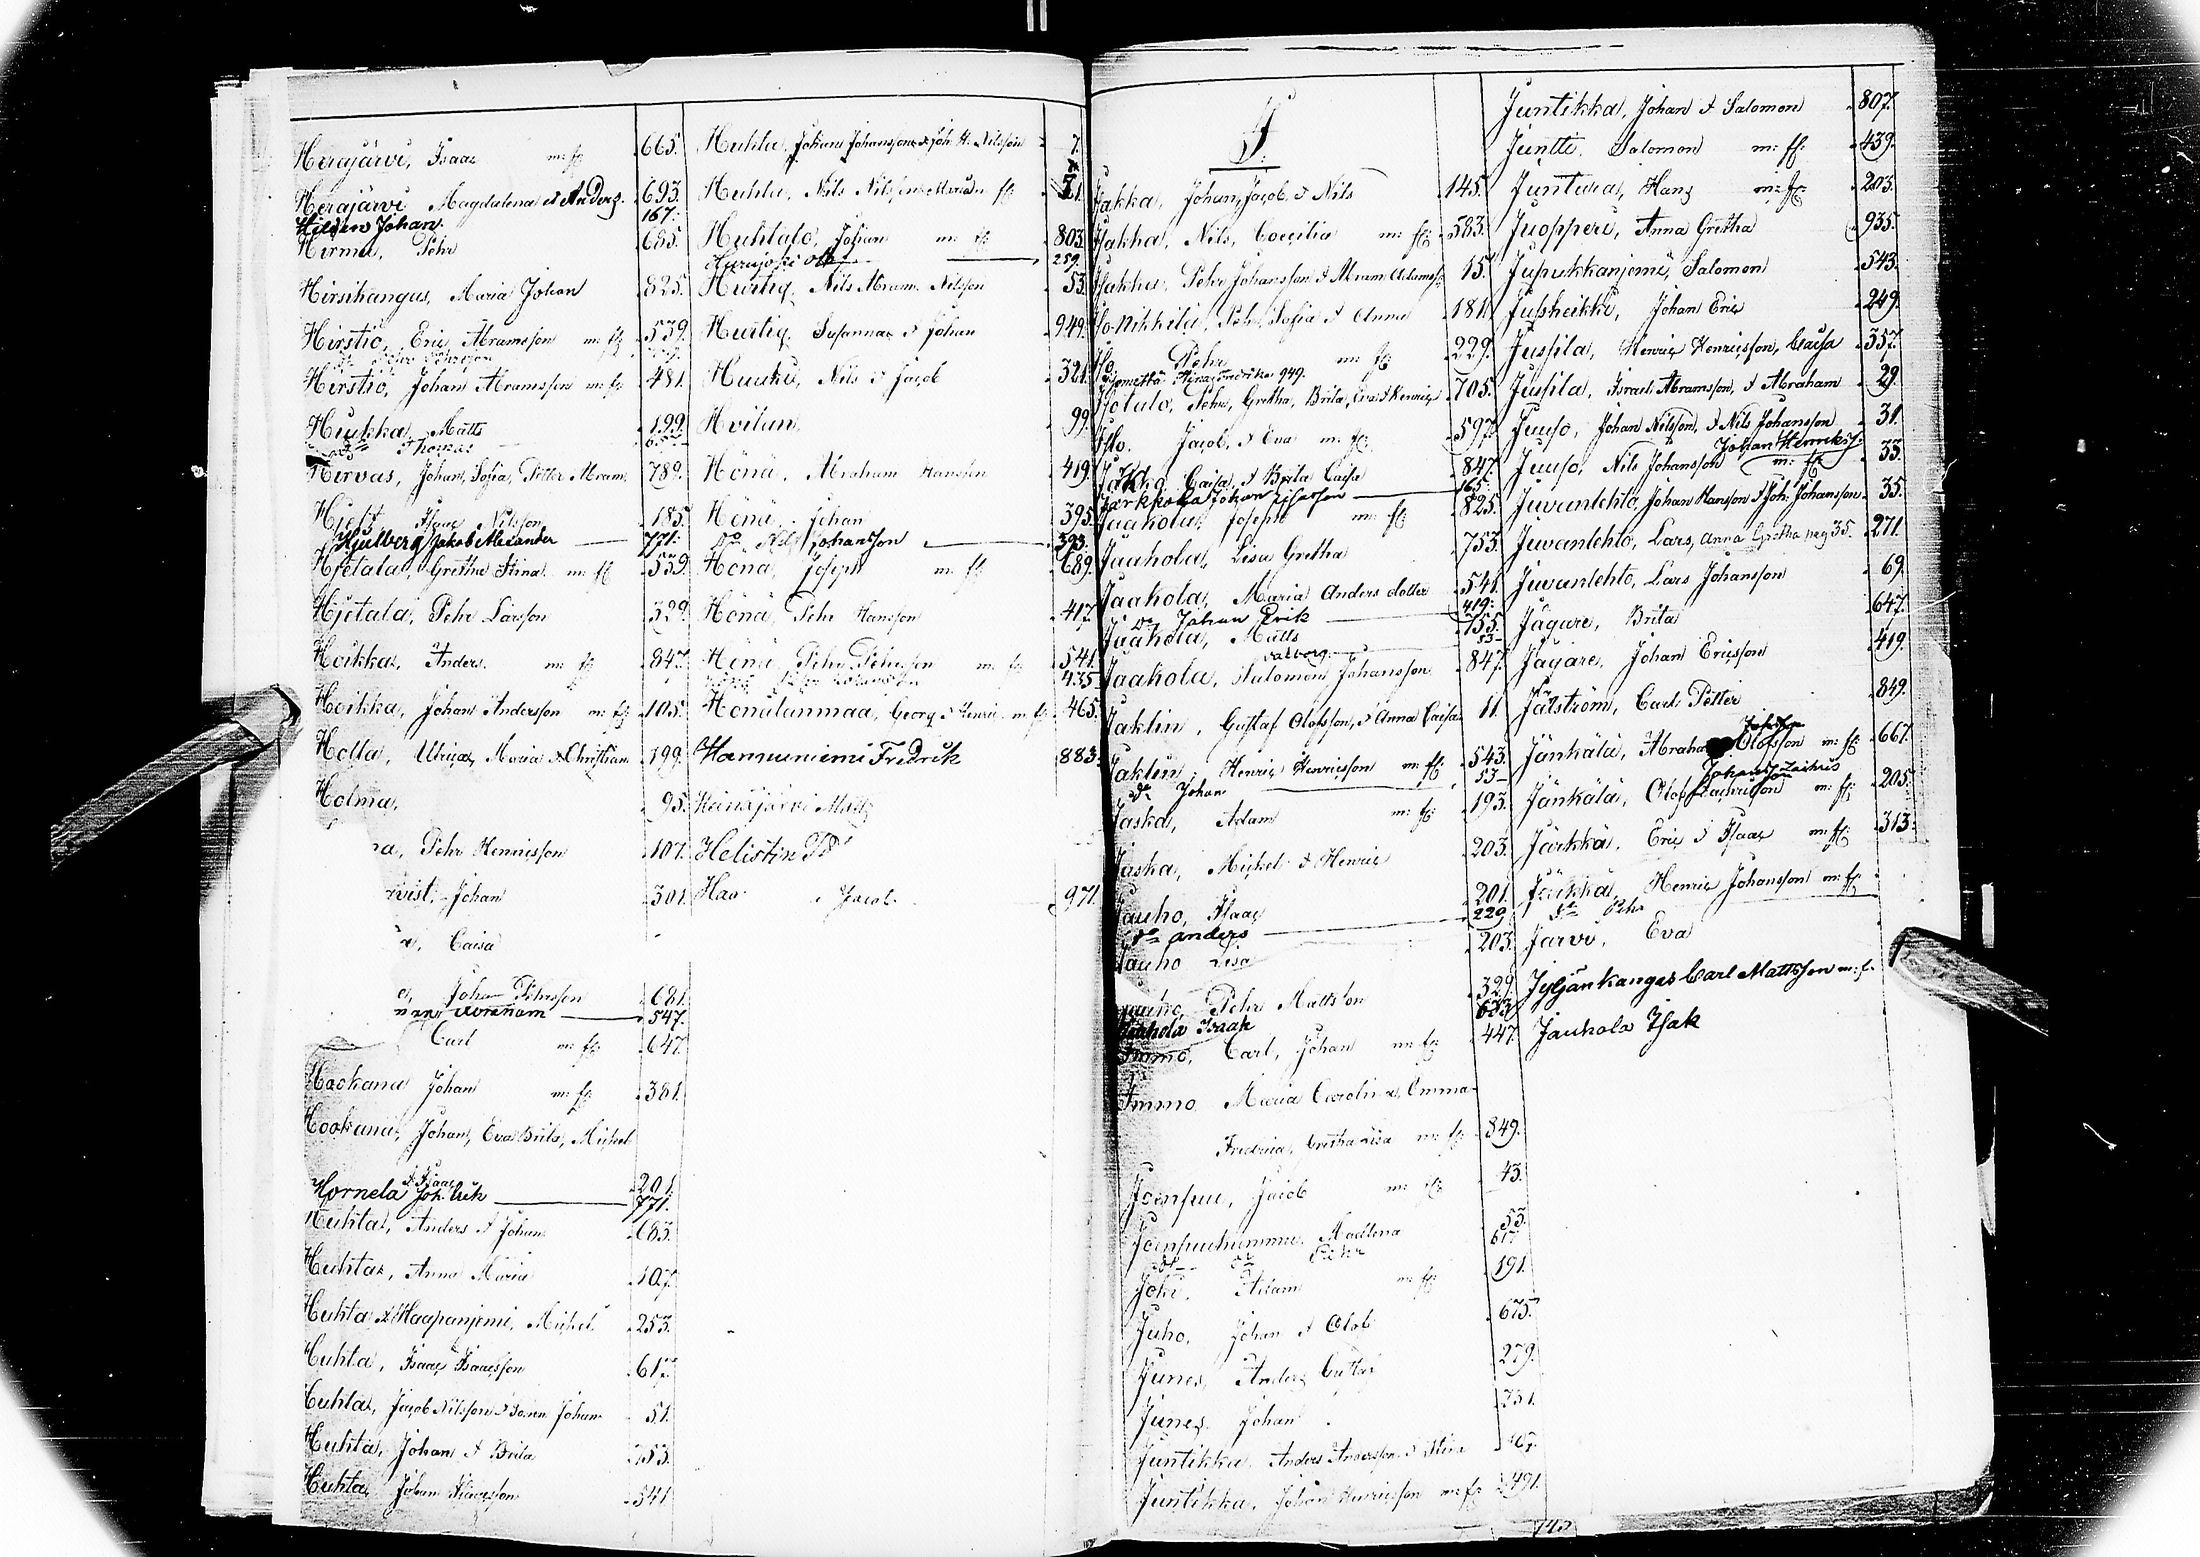 Herajärvi, Isaac m: fl: 665.
Herajärvi Magdalena & Anders. 693.
Hilden Johan. 167.
Hirmu, Pehr 685.
Hirsikangas, Maria Johan 825.
Hirstiö, Eric Abramsson m: fl: 539.
Hirstiö, Johan Abramsson m: fl: 481.
Hiukka, Matts 199.
Thomas
Hirvas, Johan, Sofia, Petter Abram. 789.
Isaac Nilsson 185.
Hjulberg Jakob Alexander 771.
Hjetala, Gretha Stina m: fl: 559.
Hjetala, Pehr Larsson 329.
Hoikka, Anders. m: fl: 847.
Hoikka, Johan Andersson m: fl: 105.
Holla, Ulrica, Maria & Christian 199.
Holma, 95.
Pehr Henricsson 107.
Johan 301.
Caisa
Johan Pehrsson 681.
Abraham 547.
Carl m: fl: 647.
Hookana Johan m: fl: 381.
Hookana, Johan, Eva Brita, Michel
& Isaac 201.
Hornela Joh. Erik 771.
Huhta, Anders & Johan 683.
Huhta, Anna Maria 107.
Huhta & Haapaniemi, Michel 253.
Huhta, Isaac Isaacsson 617.
Huhta, Jacob Nilsson & Johan 51.
Huhta, Johan & Brita 753.
Huhta, Johan Isaacsson 541.
Huhta, Johan Johansson & Joh. H. Nilsson 7.
Huhta, Nils Nilsson fl: 51.
Huhtalo, Johan m: fl: 803.
259.
Hurtig, Nils Abram. Nilsson 53.
Hurtig, Susanna & Johan 949.
Huuki, Nils & Jacob 321.
Hvilan 99.
Hönä, Abraham Hansson 419.
Hönä, Johan 395.
Do Nils Johansson 393.
Hönä, Joseph m: fl: 689.
Hönä, Pehr Hansson 417.
Hönä, Pehr Pehrsson m: fl: 541.
435
Hönälanmaa, Georg & Henric m: fl: 465.
Hamuniemi Fredrik 883.
Heinäjärvi Matts
Helistin
Jacob. 971.
J.
Jakka, Johan, Jacob, & Nils 145.
Jakka, Nils, Coecilia m: fl: 583.
Jakka, Pehr Johansson & Abram Adamss: 15.
Iso-Nikkilä, Pehr, Sofia & Anna 181.
Iso Pehr, m: fl: 229.
Stina Fredrika 949.
Isotalo, Pehr, Gretha, Brita, Eva & Henric 705.
Jacob, & Eva m: fl: 597.
Jakko, Caisa, & Brita Caisa 847.
Jarkkola Johan Isaksson 165.
Jaakola, Joseph m: fl: 825.
Jaakola, Lisa Gretha 753.
Jaakola, Maria Andersdotter 541.
Do Johan Erik 419.
Jaakola, Matts 155.
53
Jaakola, Salomon Johansson 847.
Jaklin, Gustaf Olofsson, & Anna Caisa 11.
Jaklin, Henric Henricsson m: fl: 543.
Do Johan 53
Jaska, Adam m: fl: 193.
Jaska, Michel & Henric 203.
Jauho, Isaac 201.
Do Anders 229
Jauho Lisa 203.
Jauho, Pehr Mattsson 329.
Jaakola Isaak 683
Immo, Carl, Johan m: fl: 447.
Immo Maria Carolina, Emma
Fredrica, Gretha Lisa m: fl: 849.
Joenpuu, Jacob m: fl: 43.
53.
Pehr 617
Joki, Adam m: fl: 191.
Juho, Johan & Olof 675.
Junes, Anders Gustaf 279.
Junes, Johan 751.
Juntikka Anders Andersson & Stina 467.
Juntikka, Johan Henricsson m: fl: 491.
Juntikka, Johan & Salomon 807.
Juntti, Salomon m: fl: 439.
Juntura, Hans m: fl: 203.
Juopperi, Anna Gretha 935.
Jupukkaniemi, Salomon 543.
Jussheikki, Johan Eric 249.
Jussila, Henric Henricsson, Caisa 357.
Jussila, Israel Abramsson, & Abraham 29.
Juuso, Johan Nilsson, & Nils Johansson 31.
Johan Henriks s.
Juuso, Nils Johansson m: fl: 33.
Juvanlehto, Johan Hansson & Joh. Johansson 35.
Juvanlehto, Lars, Anna Gretha pag 35. 271.
Juvanlehto, Lars Johansson 69.
Jägare, Brita 647.
Jägare, Johan Ericsson 419.
Jälström, Carl Petter 849.
Johan
Jänkälä, Abraham Olofsson m: fl: 667.
Johan Zachris
Jänkälä, Olof Zachrisson m: fl: 205.
Järkkä, Eric & Isaac m: fl: 313.
Henric Johansson m: fl:
Do Pehr
Järvi, Eva
Jyljänkangas Carl Mattsson m: f.
Jauhola Isak